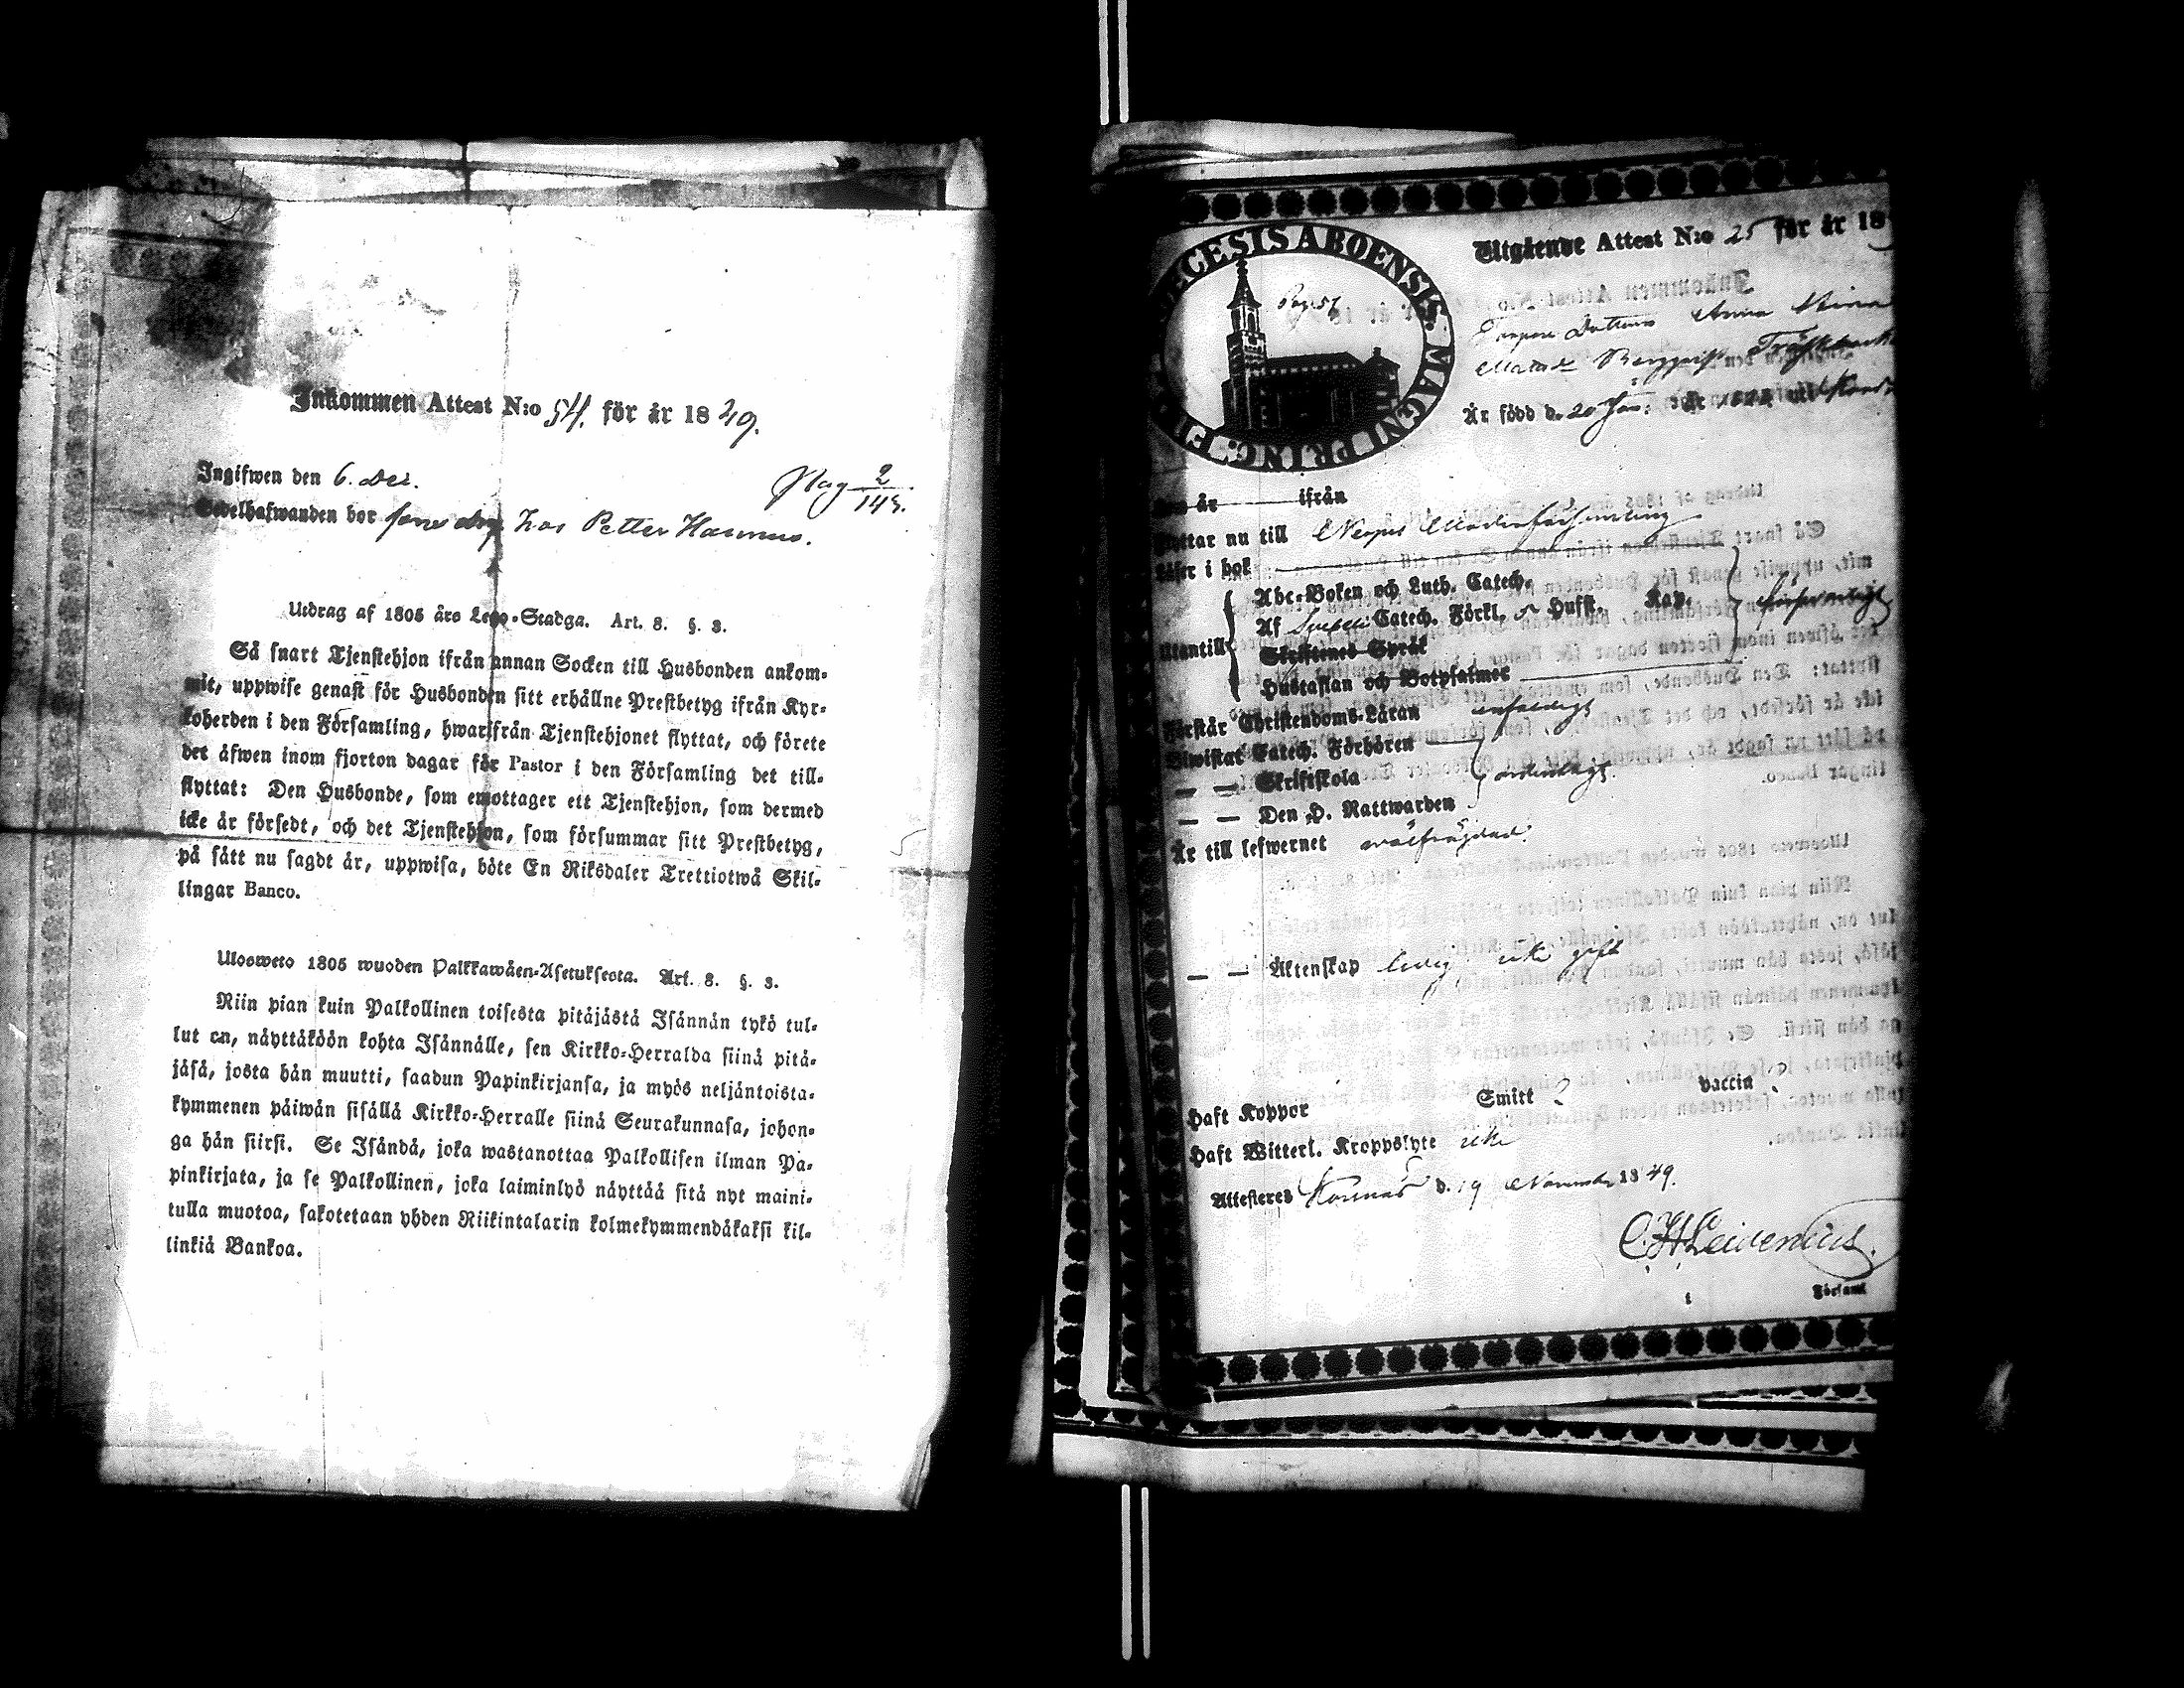 Inkommen Attest N:o 54. för år 1849.
Ingifwen den 6. Dec.
Pag 2/143.
Sedelhafwanden bor som drg hos Petter Hannus.
Utdrag af 1805 års Lego-Stadga. Art. 8. §. 3.
Så snart Tjenstehjon ifrån annan Socken till Husbonden ankom-
mit, uppwise genast för Husbonden sitt erhållne Prestbetyg ifrån Kyr-
koherden i den Församling, hwarifrån Tjenstehjonet flyttat, och förete
det äfwen inom fjorton dagar för Pastor i den Församling det till-
flyttat: Den Husbonde, som emottager ett Tjenstehjon, som dermed
icke är försedt, och det Tjenstehjon, som försummar sitt Prestbetyg,
på sätt nu sagdt är, uppwisa, böte En Riksdaler Trettiotwå Skil-
lingar Banco.
Ulosweto 1805 wuoden Palkkawäen-Asetuksesta. Art. 8. §. 3.
Niin pian kuin Palkollinen toisesta pitäjästä Isännän tykö tul-
lut on, näyttäköön kohta Isännälle, sen Kirkko-Herralda siinä pitä-
jäsä, josta hän muutti, saadun Papinkirjansa, ja myös neljäntoista-
kymmenen päiwän sisällä Kirkko-Herralle siinä Seurakunnasa, johon-
ga hän siirsi. Se Isändä, joka wastanottaa Palkollisen ilman Pa-
pinkirjata, ja se Palkollinen, joka laiminlyö näyttää sitä nyt maini-
tulla muotoa, sakotetaan yhden Riikintalarin kolmekymmendäkaksi kil-
linkiä Bankoa.
CESIS ABOENSIS. MAGNI PRINC. FI
Pag. 57
Utgående Attest N:o 25 för år 18
Anna Stina
Är född d. 20 Jan.
år ifrån
nu till Nerpes Moderförsamling
i bok
Abc-Boken och Luth. Catech.
Af Svebelii Catech. Förkl. Husst. Kap. försvarligt
Utantill
Skriftenes Språk
Hustaflan och Botpsalmer
Förstår Christendoms-Läran enfaldigt
Biwistat Catech. Förhören
— — Skriftskola ordentligt.
— — Den H. Nattwarden
Är till lefwernet wälfräjdad.
— — Äktenskap ledig icke gift
Haft Koppor Smitt ? vaccin ?
Haft Witterl. Kroppslyte icke
Attesteres Korsnäs d. 19 November 1849.
C. H. Leivenius.
i Församl